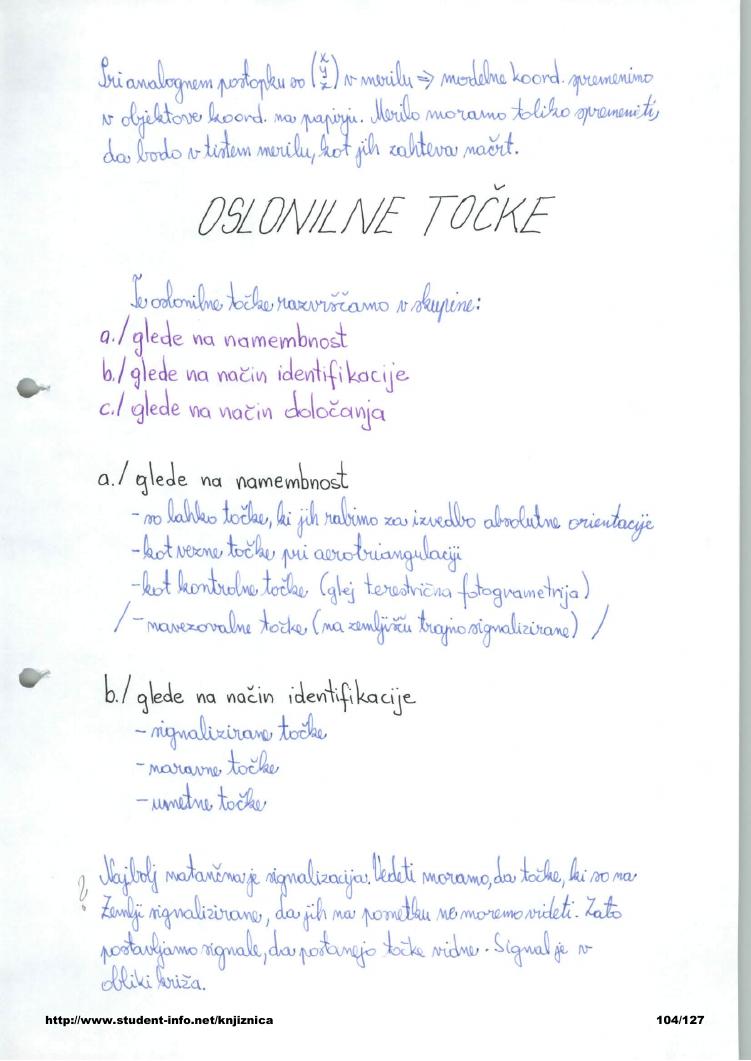 Pri analognem postopku so (x y z) v merilu ⇒ modelne koord. spremenimo
v objektove koord. na papirju. Merilo moramo toliko spremeniti,
da bodo v tistem merilu, kot jih zahteva načrt.
OSLONILNE TOČKE
Te oslonilne točke razvrščamo v skupine:
a./ glede na namembnost
b./ glede na način identifikacije
c./ glede na način določanja
a./ glede na namembnost
- so lahko točke, ki jih rabimo za izvedbo absolutne orientacije
- kot vezne točke pri aerotriangulaciji
- kot kontrolne točke (glej terestrična fotogrametrija)
/ - navezovalne točke (na zemljišču trajno signalizirane) /
b./ glede na način identifikacije
- signalizirane točke
- naravne točke
- umetne točke
Najbolj natančna je signalizacija. Vedeti moramo, da točke, ki so na
? Zemlji signalizirane, da jih na posnetku ne moremo videti. Zato
postavljamo signale, da postanejo točke vidne. Signal je v
obliki križa.
http://www.student-info.net/knjiznica 104/127